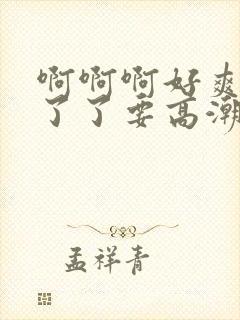 啊啊啊好爽
了了要高潮
孟祥青